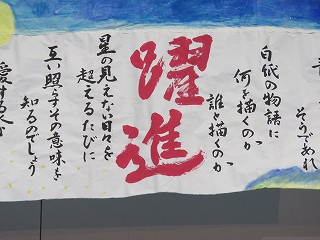 そうであれ
白紙の物語に
何を描くのか
誰と描くのか
躍進
星の見えない日々を
超えるたびに
互い照らすその意味を
知るのでしょう
愛する